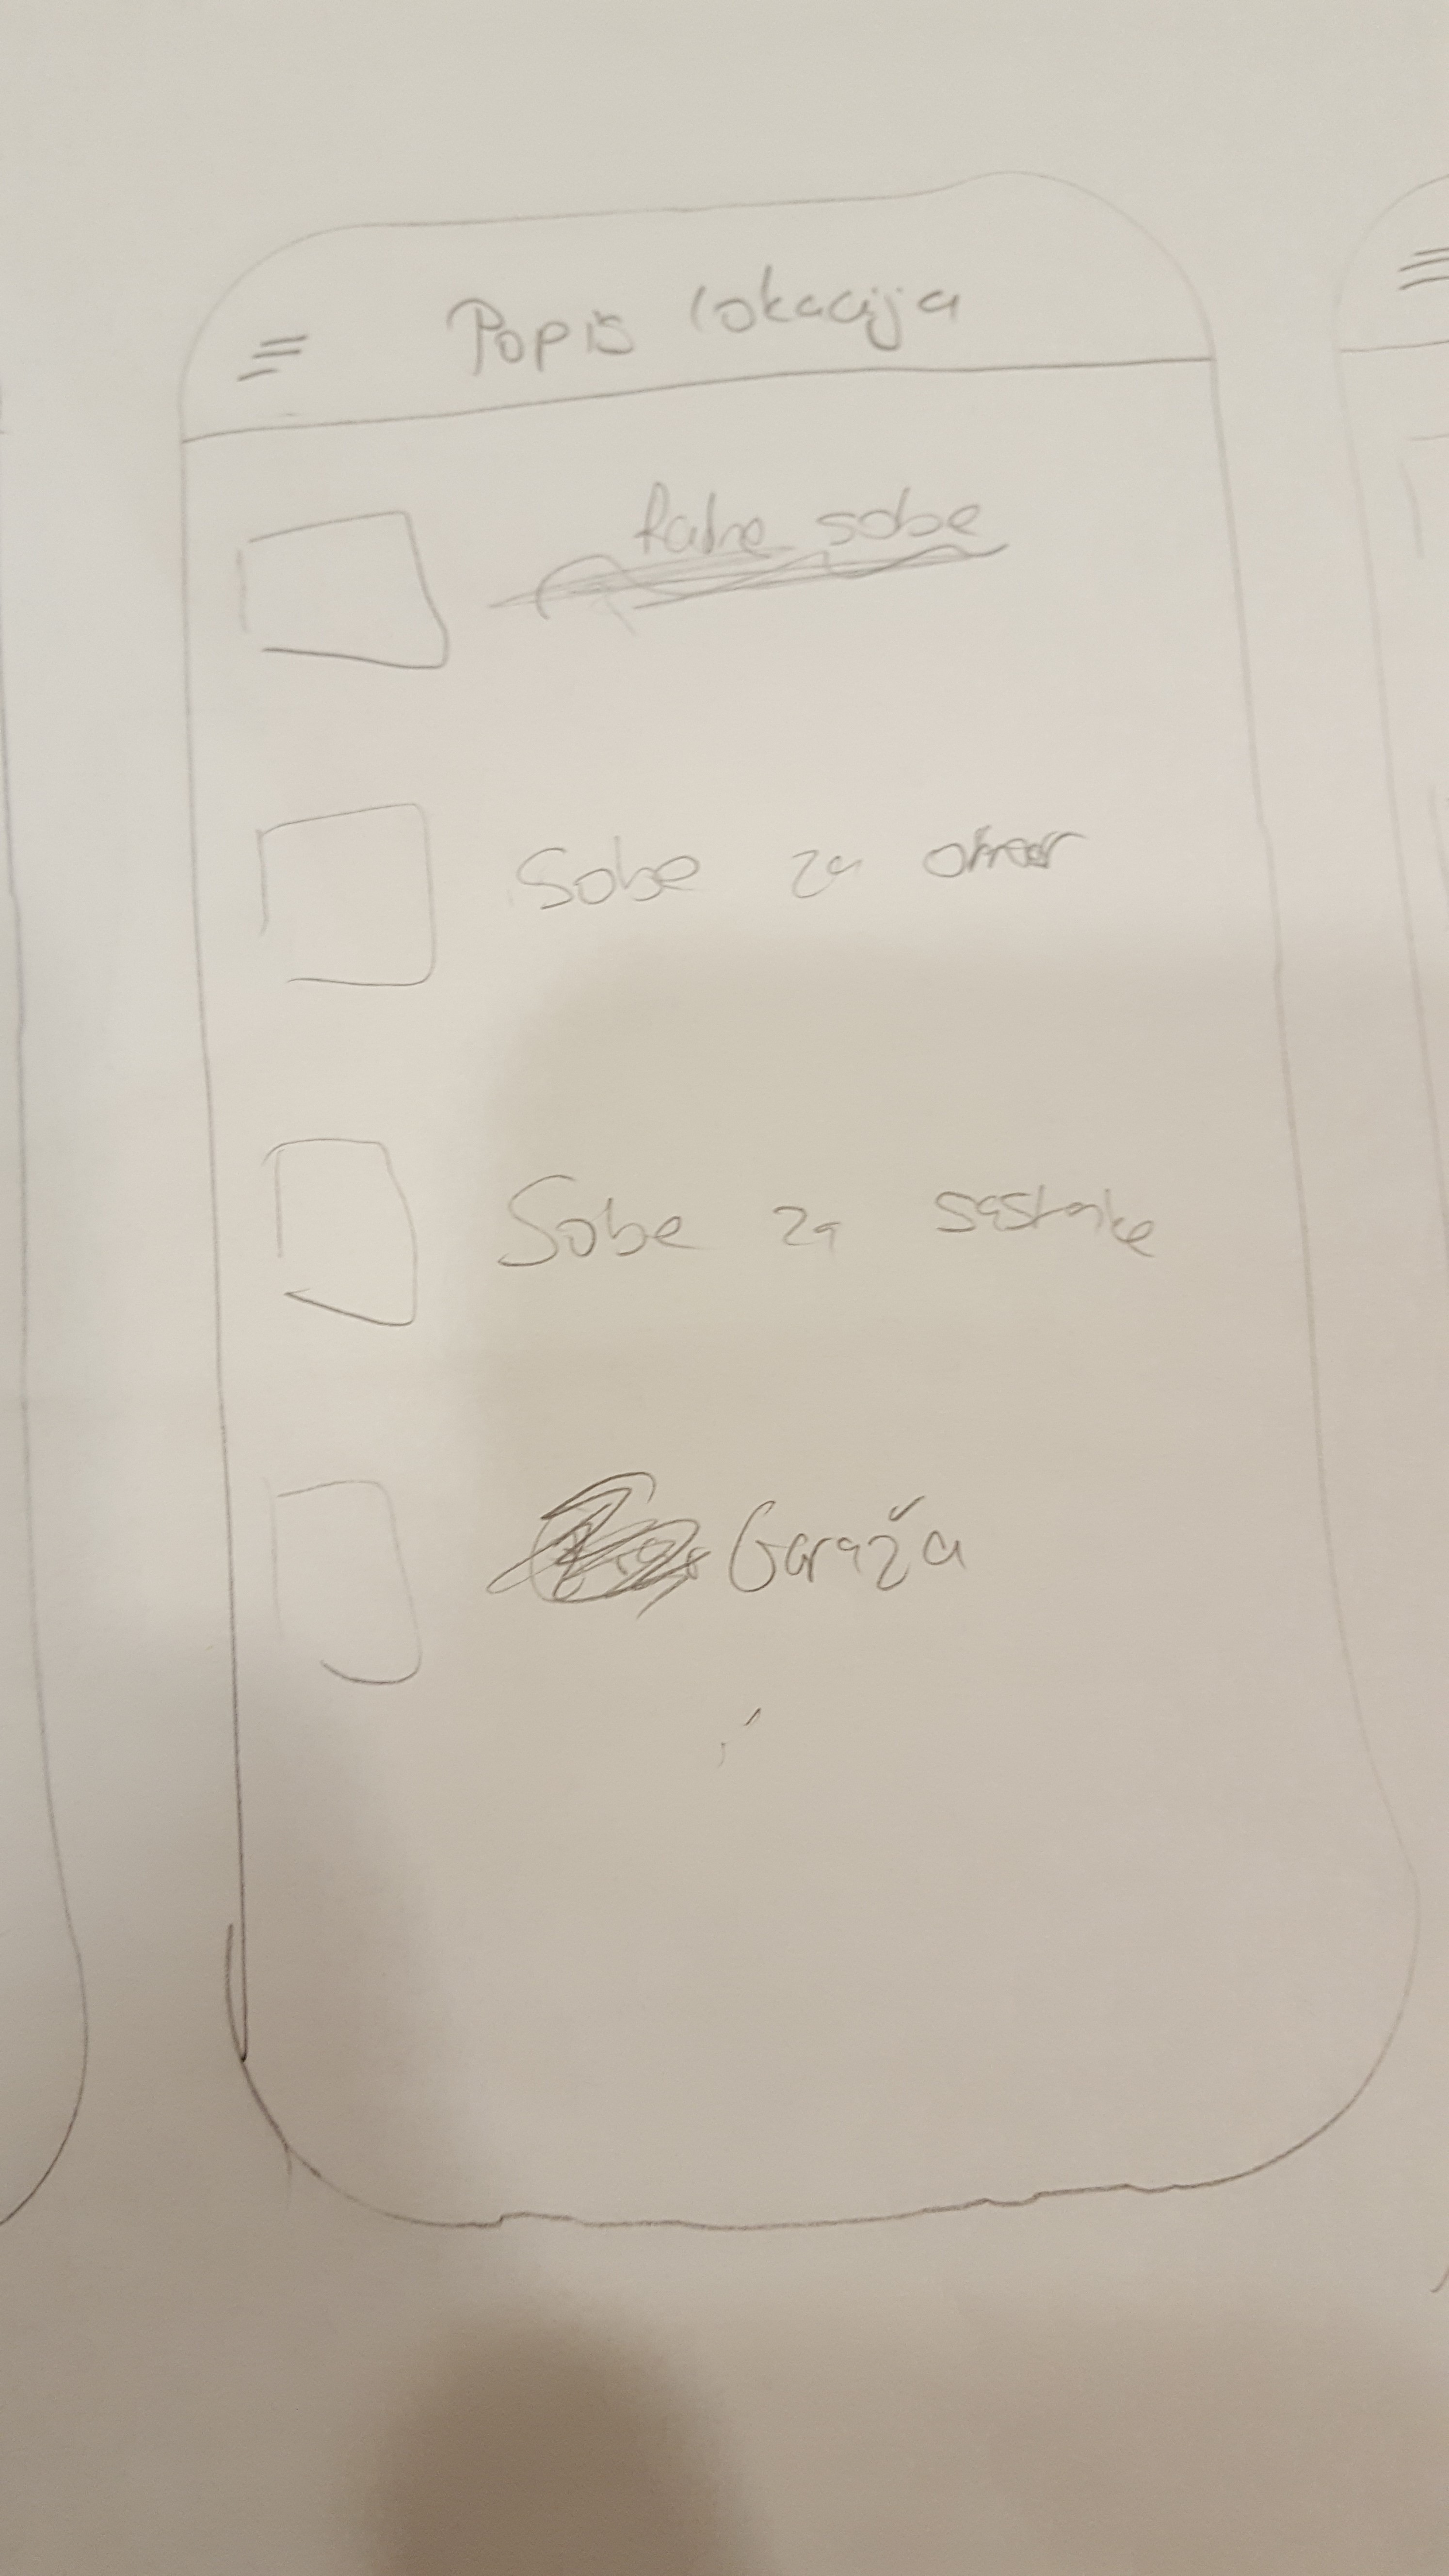 Popis lokacija
Radne sobe
Sobe za odmor
Sobe za sastanke
Garaža